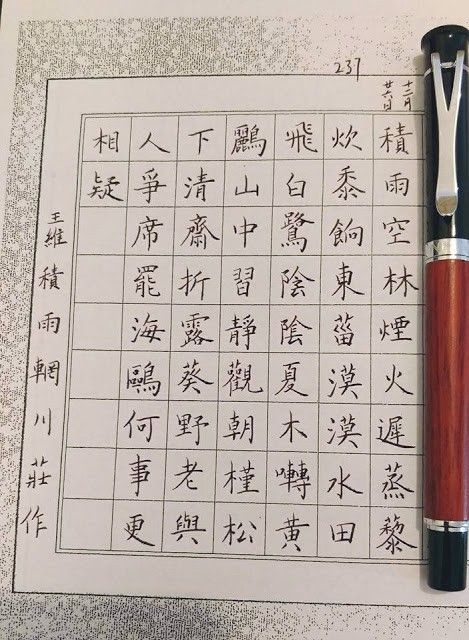 237
十二月
廿六日
積雨空林煙火遲蒸藜
炊黍餉東菑漠漠水田
飛白鷺陰陰夏木囀黃
鸝山中習靜觀朝槿松
下清齋折露葵野老與
人爭席罷海鷗何事更
相疑
王維積雨輞川莊作